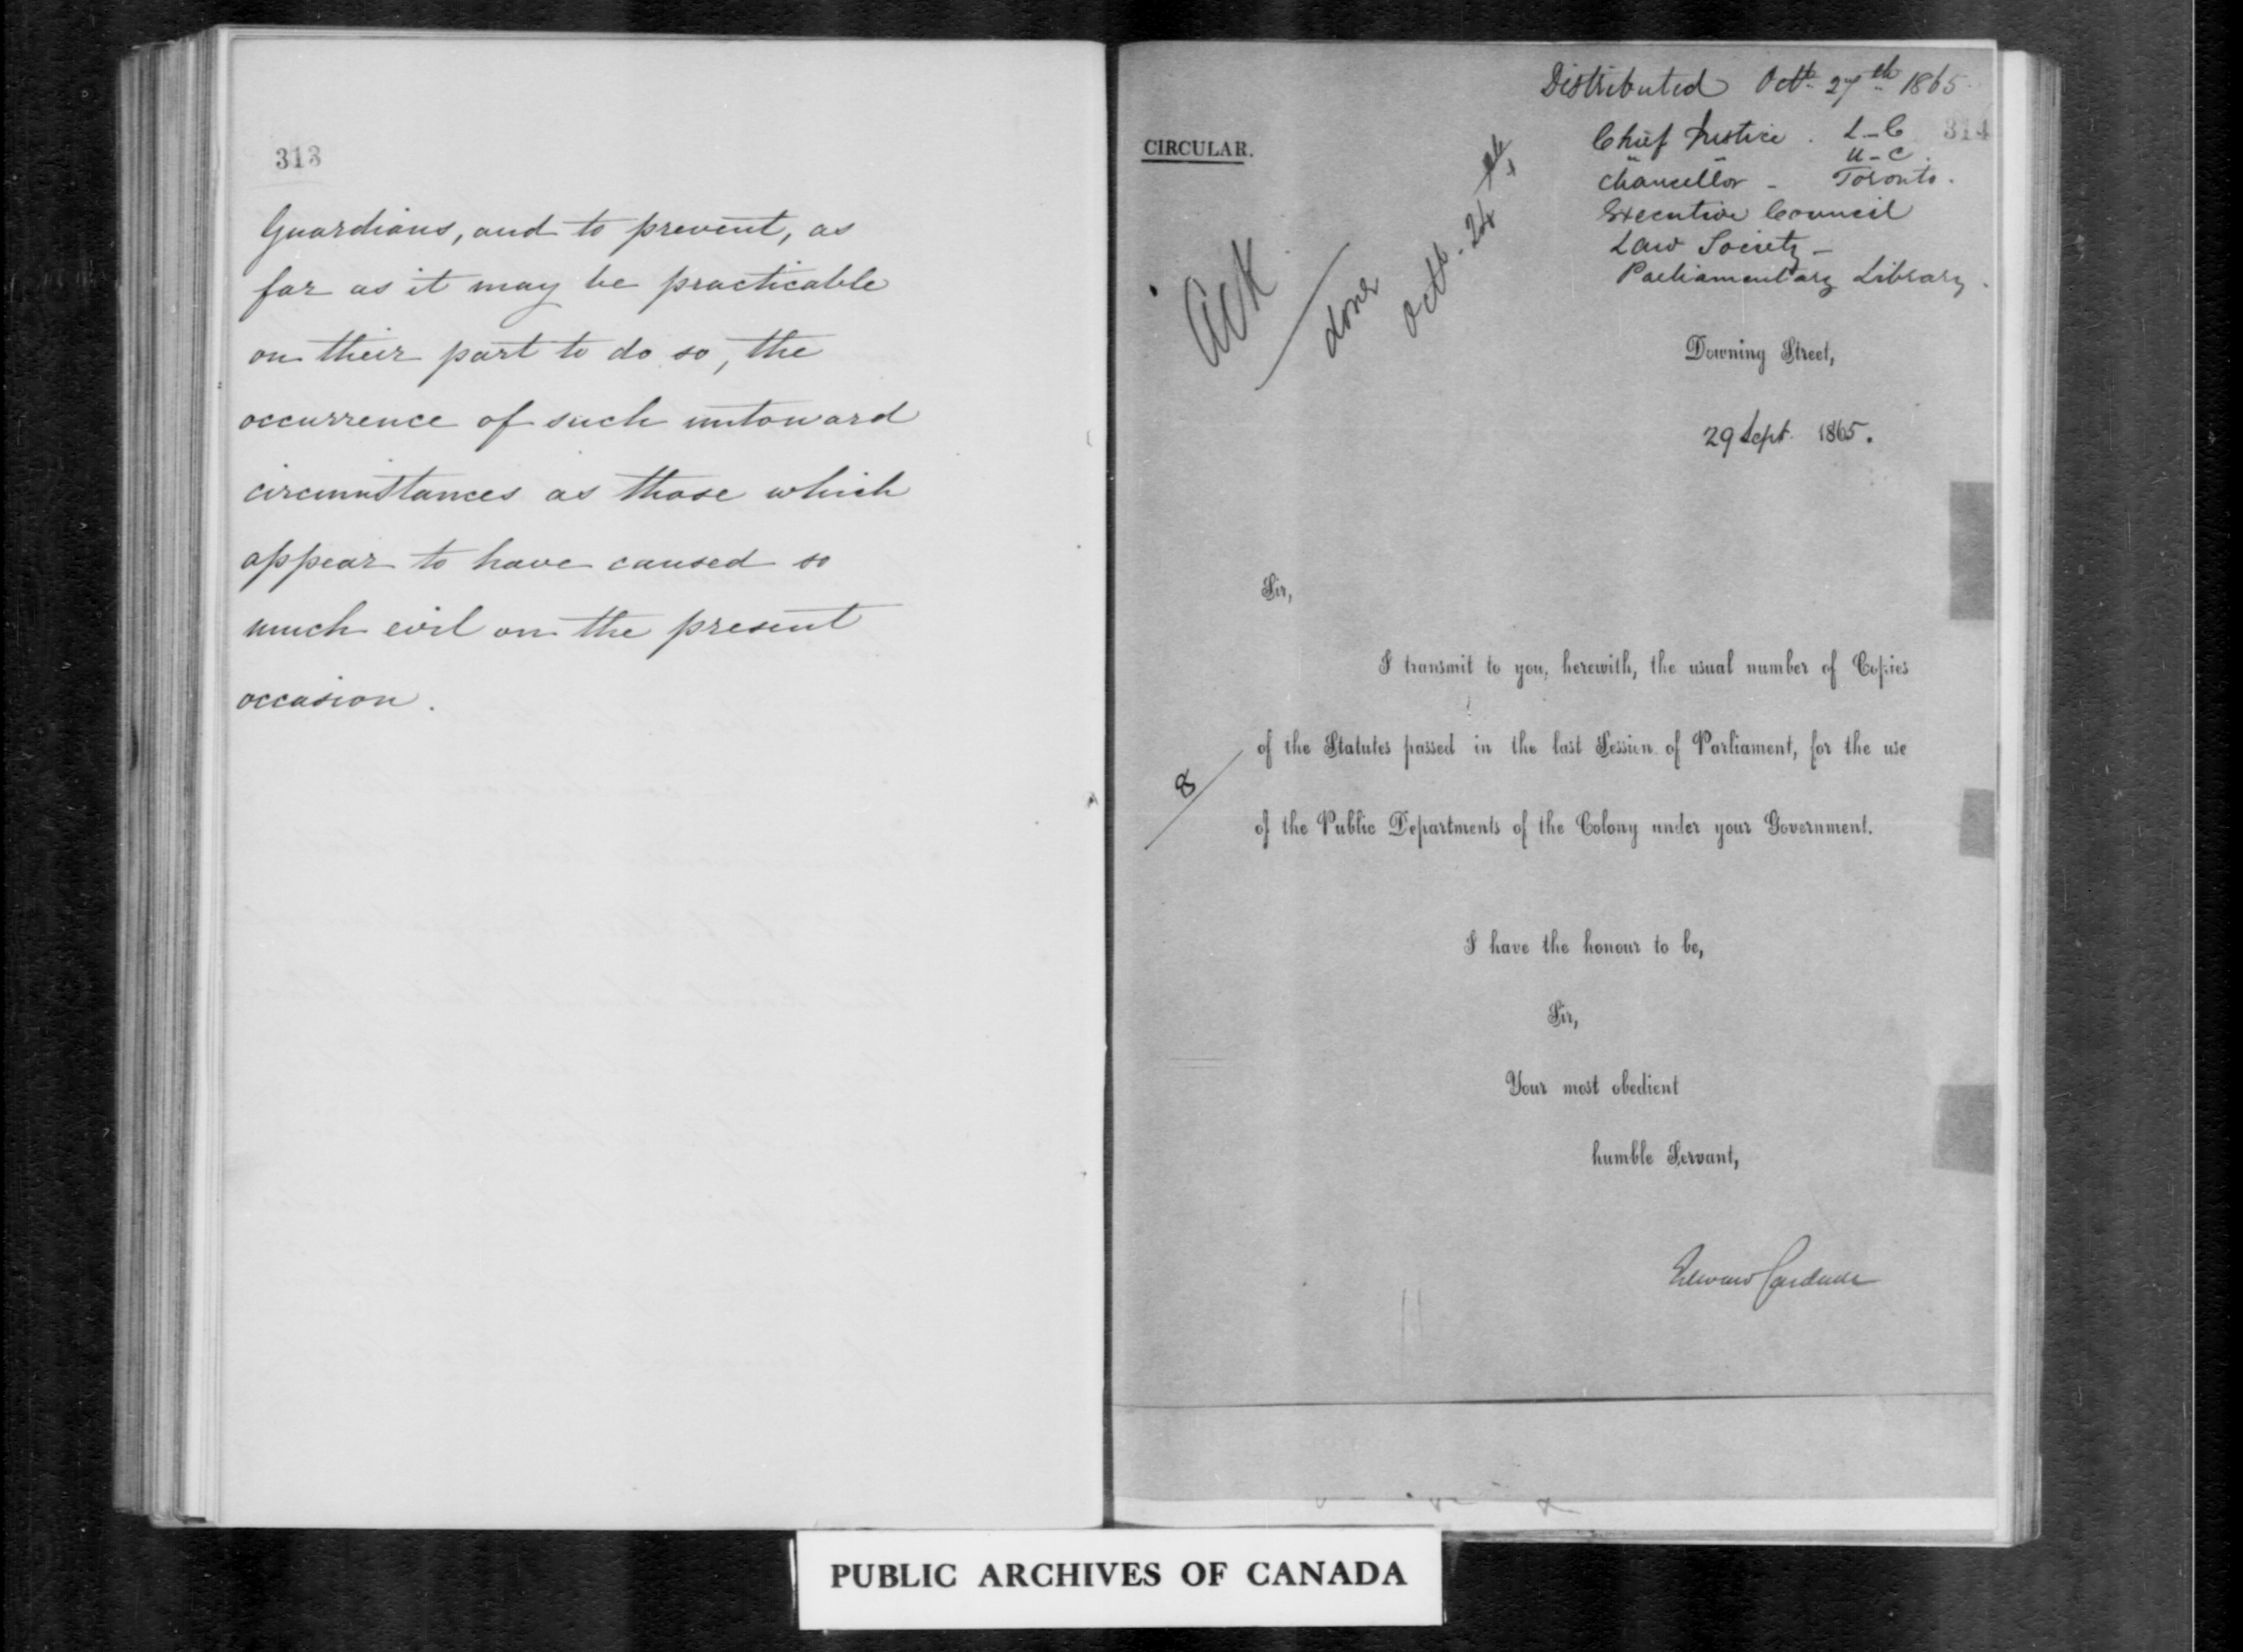 313
Guardians, and to prevent, as
far as it may be practicable
on their part to do so, the
occurrence of such untoward
circumstances as those which
appear to have caused so
much evil on the present
occasion.
Distributed Octr. 27th 1865
CIRCULAR.
Chief Justice . L-C
314
" " U-C.
Chancellor - Toronto.
Executive Council
Law Society -
Parliamentary Library.
Ack
done
Octr. 24
Downing Street,
29 Sept. 1865.
Sir,
I transmit to you, herewith, the usual number of Copies
of the Statutes passed in the last Session of Parliament, for the use
8
of the Public Departments of the Colony under your Government.
I have the honour to be,
Sir,
Your most obedient
humble Servant,
Edward Cardwell
PUBLIC ARCHIVES OF CANADA